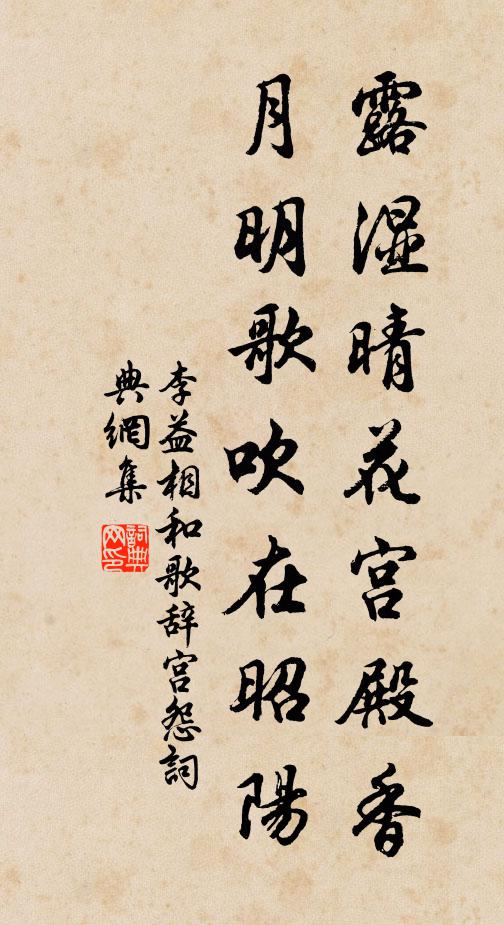 露湿晴花宫殿香
月明歌吹在昭陽
李益相和歌辞宫怨詞
典網集
詞典網印